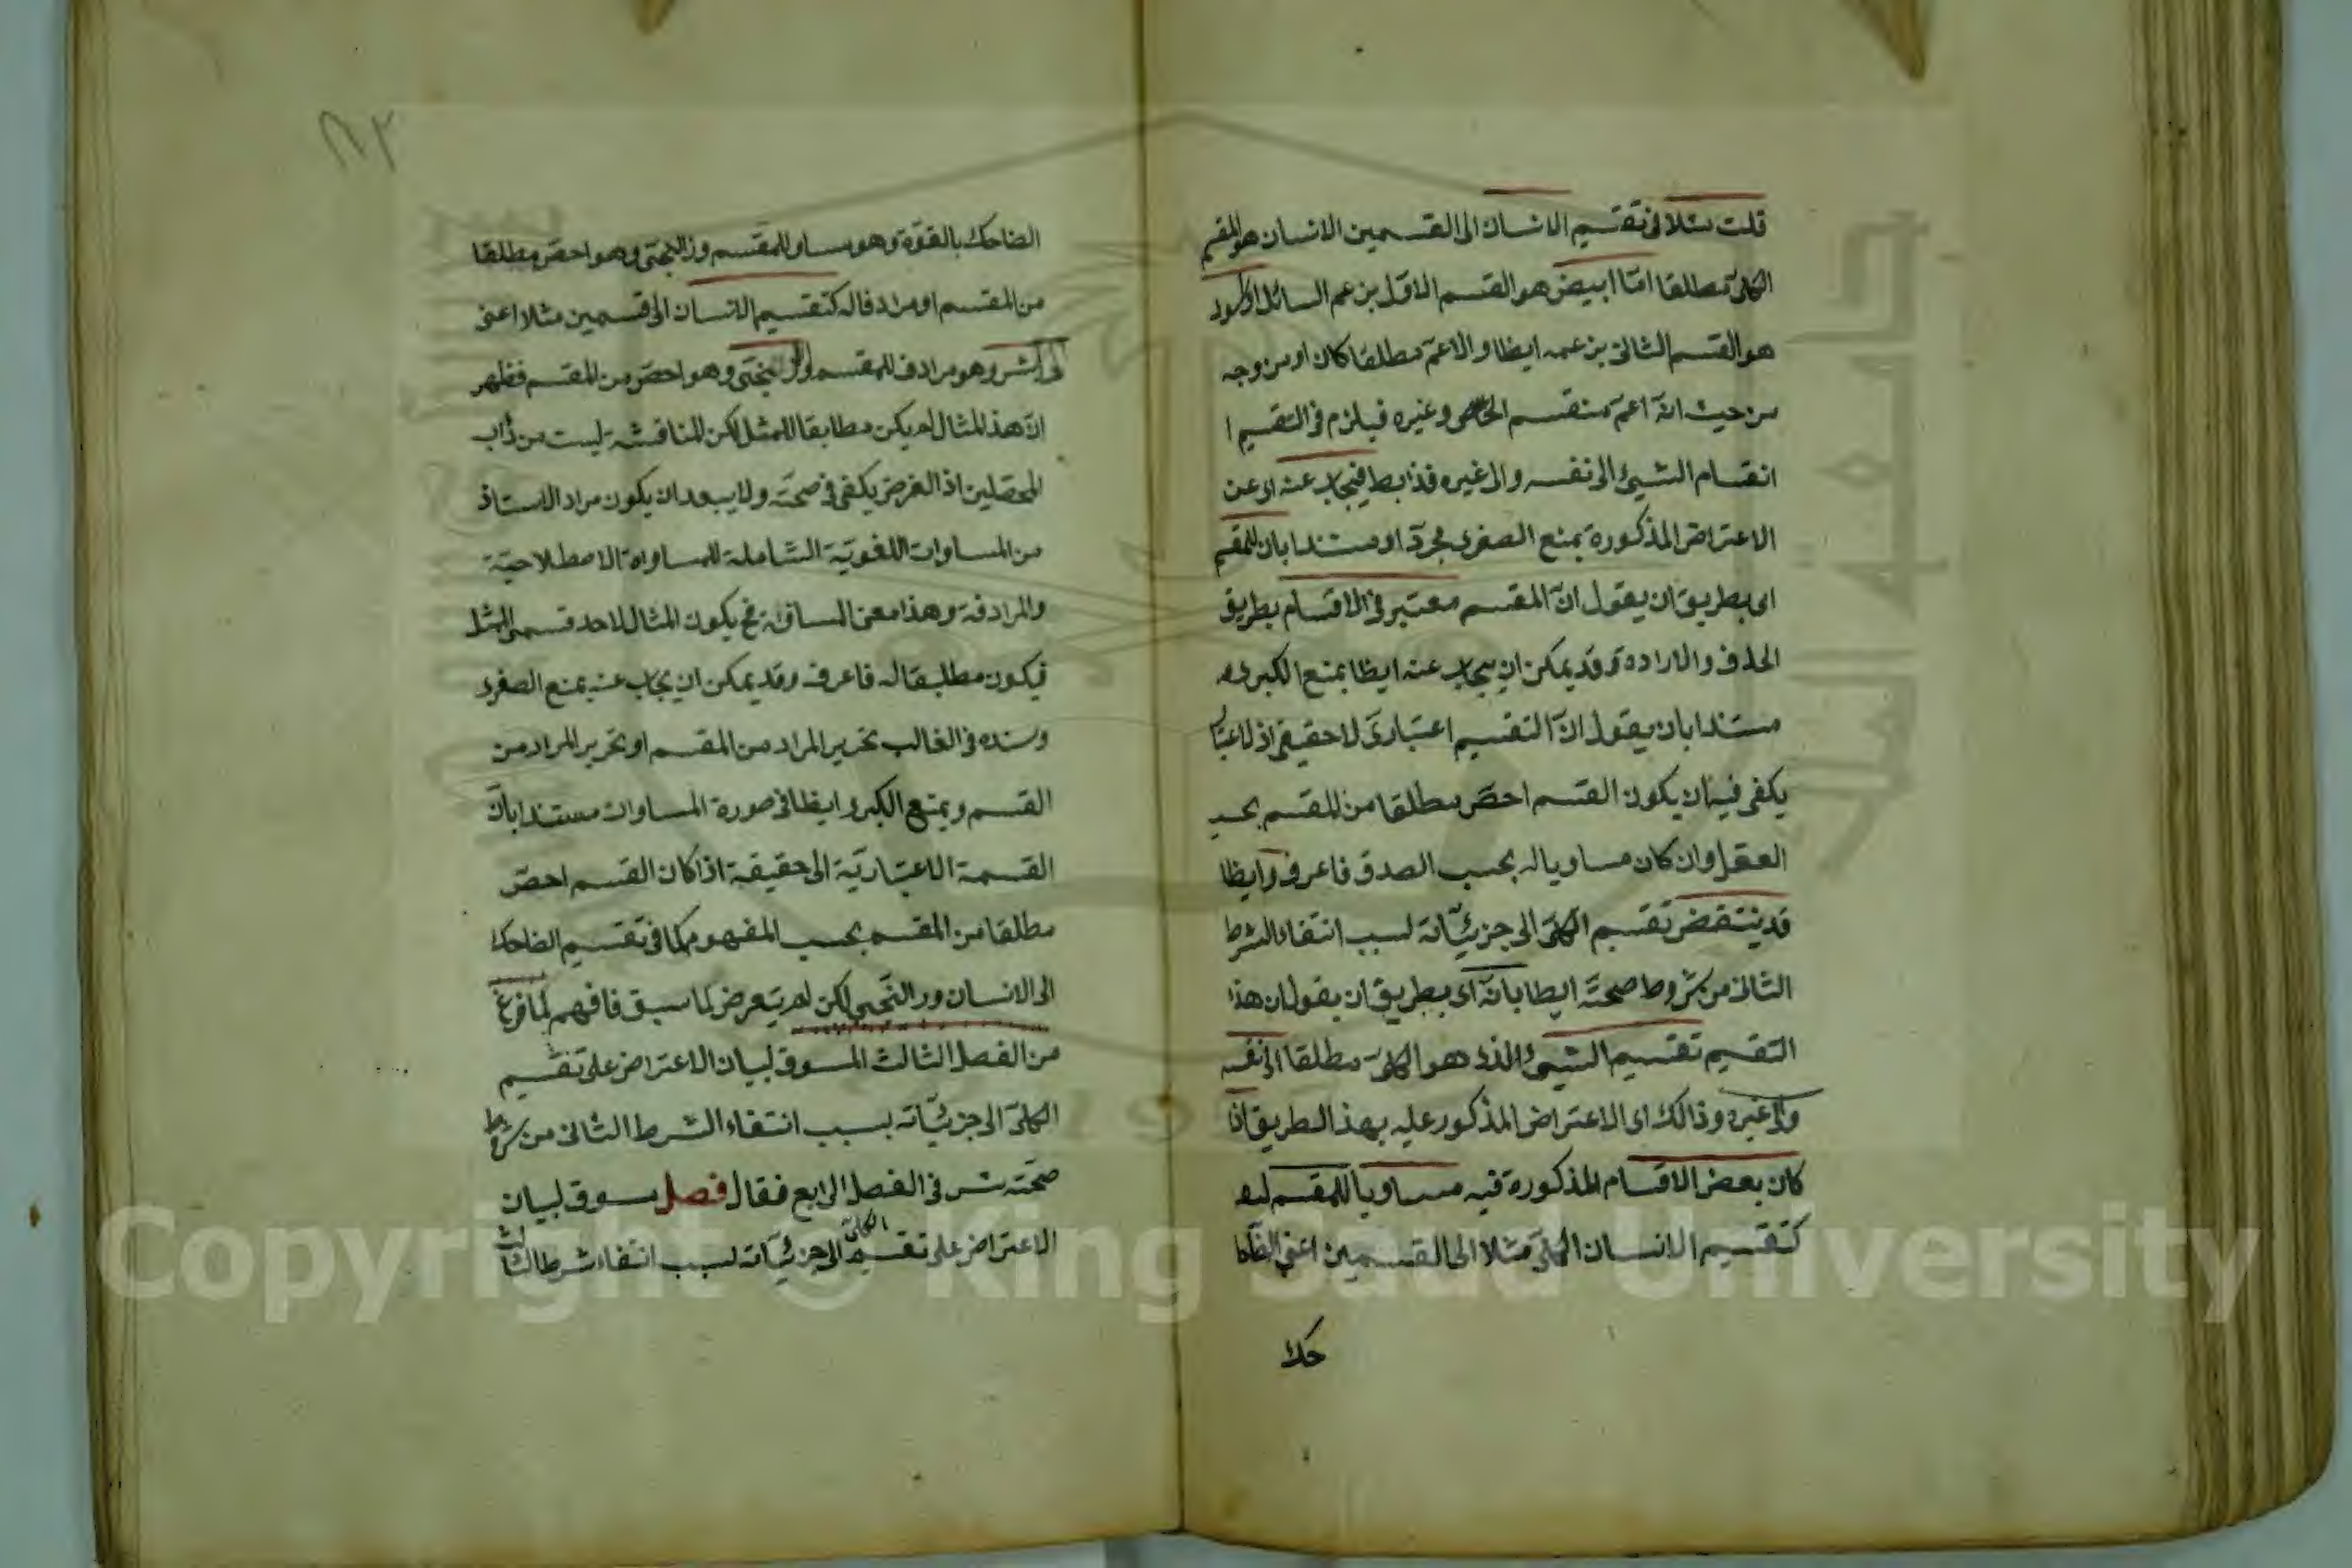 قلت مثلا فى تقسيم الانسان الى القسمين الانسان هو المقسم
الكلى مطلقا امّا ابيض هو القسم الاوّل بزعم السائل او اسود
هو القسم الثانى بزعمه ايظا والاعمّ مطلقا كان او من وجه
من حيث انّه اعمّ منقسم الخاص وغيره فيلزم فى التقسيم ا
انقسام الشيئ الى نفسه والى غيره فذا بط فيجاب عنه اى عن
الاعتراض المذكورة بمنع الصغرى مجردّا او مستندا بان المقسم
اى بطريق ان يقول انّ المقسم معتبر فى الاقسام بطريق
الحذف والارادة وقد يمكن ان يجاب عنه ايظا بمنع الكبرى
مستندا بان يقول انّ التقسيم اعتبارىّ لا حقيقى اذ الاعتبا
يكفى فيه ان يكون القسم اخصّ مطلقا من المقسم بحسب
العقل وان كان مساويا له بحسب الصدق فاعرف وايظا
قد ينتقض تقسيم الكلىّ الى جزئيّاته لسبب انتفاء الشرط
الثانى من شروط صحتّه ايظا بانّه اى بطريق ان يقول ان هذا
التقسيم تقسيم الشيئ الذى هو الكلىّ مطلقا الى نفسه
والى غيره وذالك اى الاعتراض المذكور عليه بهذا الطريق اذا
كان بعض الاقسام المذكورة فيه مساويا للمقسم له
كتقسيم الانسان الكلىّ مثلا الى القسمين اعنى الضا
حك
٨٣
الضاحك بالقوّة وهو مساو للمقسم و الىجتى وهو اخصّ مطلقا
من المقسم او مرادفا له كتقسيم الانسان الى قسمين مثلا اعنى
الى البشر وهو مرادف للمقسم وهو اخصّ من المقسم فظهر
انّ هذ المثال لم يكن مطابقا للممثل لكن المناقشة ليست من دأب
المحصّلين اذ الغرض يكفى فى صحتّه ولا يبعد ان يكون مراد الاستاذ
من المساوات اللغويّة الشاملة للمساواة الاصطلاحيّة
والمرادفة وهذا معنى المساق فح يكون المثال لاحد قسمى الممثل
فيكون مطلبقا له فاعرف وقد يمكن ان يجاب عنه بمنع الصغرى
وسنده فى الغالب تحرير المراد من المقسم او تحرير المراد من
القسم ويمنع الكبرى ايظا فى صورة المساوات مستندا بانّ
القسمة الاعتباريّة الى حقيقة اذا كان القسم اخصّ
مطلقا من المقسم بحسب المفهوم كما فى تقسيم الضاحك
الى الانسان و لكن لم يتعرض لما سبق فافهم لمّا فرغ
من الفصل الثالث المسوق لبيان الاعتراض على تقسيم
الكلىّ الى جزئيّاته بسبب انتفاء الشرط الثانى من شروط
صحّته شرع فى الفصل الرابع فقال فصل سوق لبيان
الاعتراض على تقسيم الكلىّ الى جزئيّاته لسبب انتفاء شرط الثالث
Copyright © King Saud University